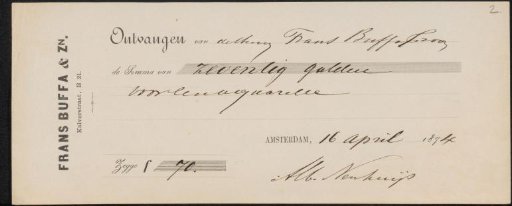 2.
FRANS BUFFA & ZN.
Kalverstraat, H 21.
Ontvangen van de Heer Frans Buffa & Zoon
de Somma van zeventig gulden
voor een aquarelle
AMSTERDAM, 16 april 1894
Zegge f 70.
Alb. Neuhuijs